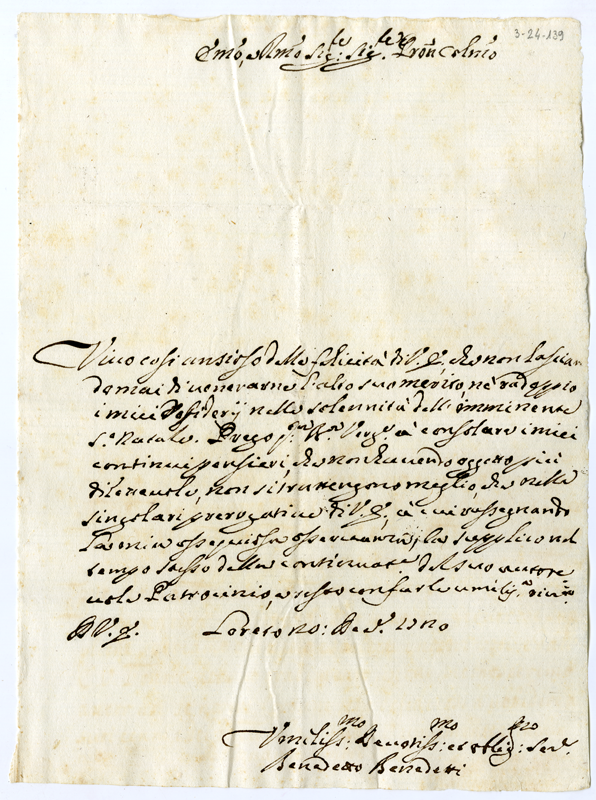 3-24-139
Em̃o, e Rm̃o Sig:re Sig.re Pron̄ Colm̃o
Viuo cosi ansioso della felicità di V. E., che non lascian
do mai di uenerarne l'alto suo merito ne radoppio
i miei desiderij nella solennità dell imminente
S.o Natale. Prego
Verg.e à consolare i miei
continui pensieri, che non hauendo oggetto più
diletteuole, non si trattengono meglio, che nelle
singolari prerogatiue di V. E., à cui rassegnando
la mia ossequiosa osseruanza, la supplico nel
tempo stesso della continuat.e del suo autore
uole Patrocinio, e resto con farle umilis.a riu.za
D V. E. Loreto
Umiliss:mo Deuotiss:mo et Obblig:mo Ser.
Benedetto Benedetti